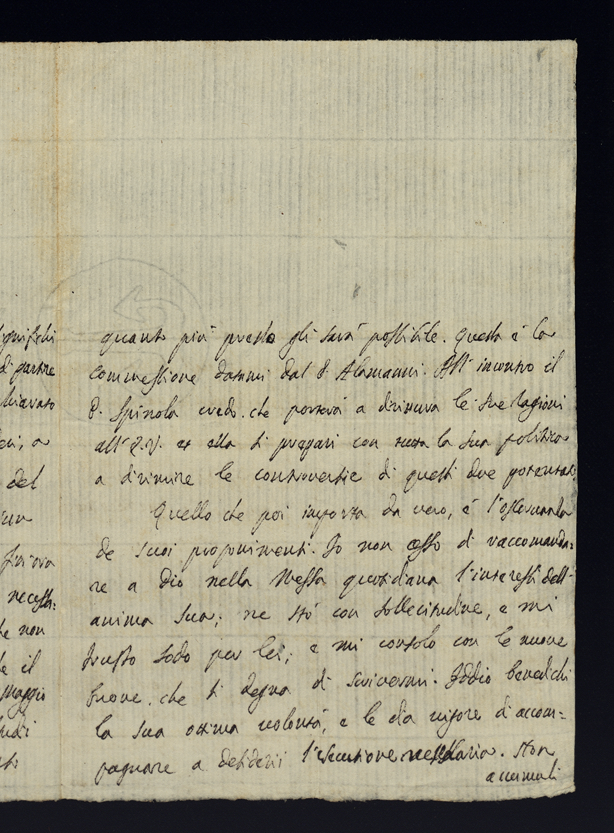 quanto più presto gli sarà possibile. Questa è la
commessione datami dal P. Alamanni. All' incontro il
P. Spinola credo che porterà a dirittura le sue ragioni
all' et ella si prepari con tutta la sua politica
a dirimire le controversie di questi due potentati
Quello che poi importa da vero, è l'osservanza
de suoi proponimenti. Io non cesso di raccomanda=
re a Dio nella Messa quotidiana l'interessi dell'
anima sua; ne stò con sollecitudine, e mi
sodo per lei; e mi consolo con le nuove
buone, che si degna di scrivermi. Iddio benedichi
la sua ottima volontà, e le dia vigore di accom=
pagnare a desiderii l'esecutione necessaria. Non
accumuli
significhi
di partire
chiavato
del
priova
necessa:
he non
il
maggio